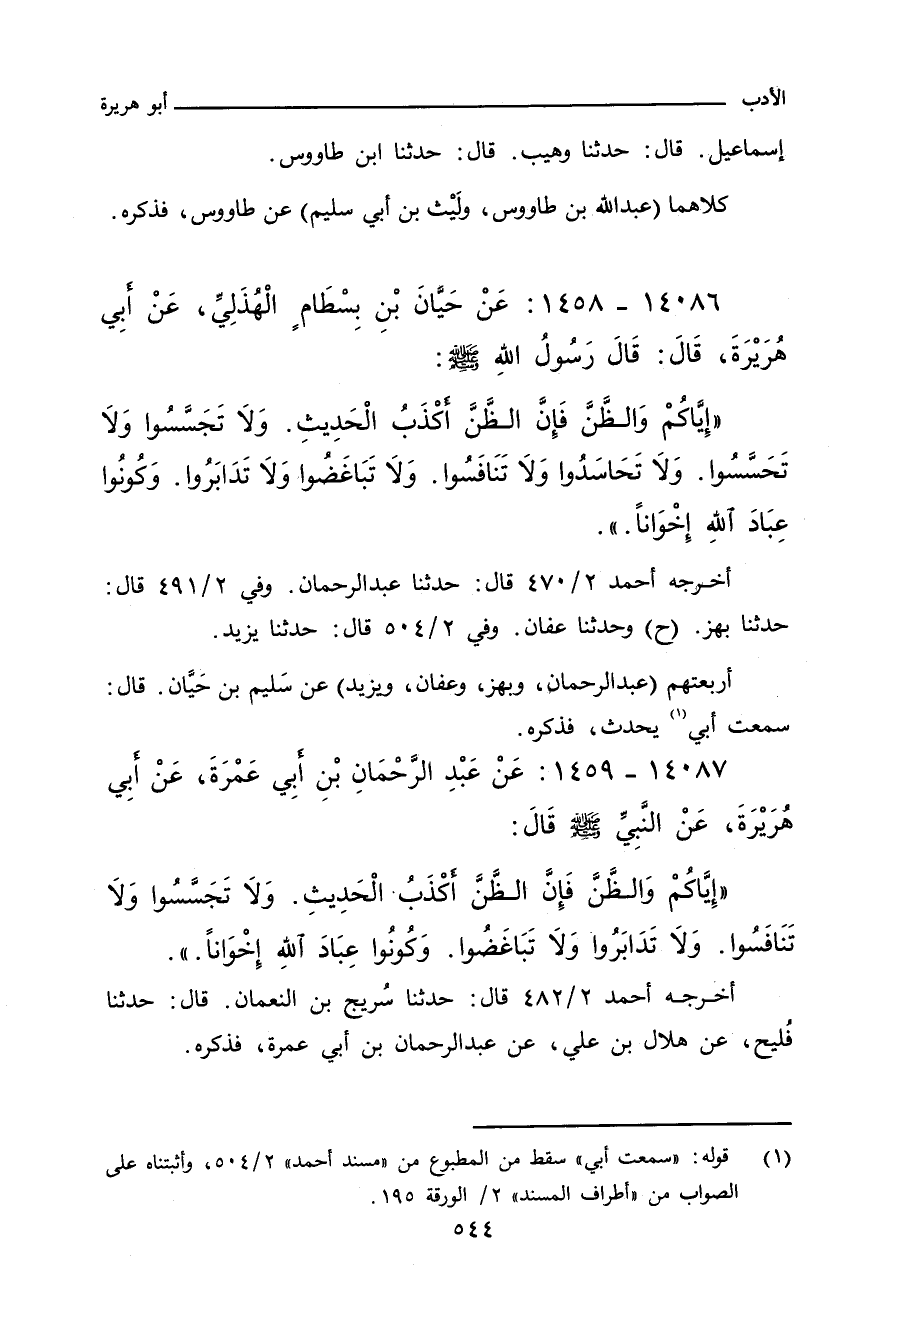 الأدب أبو هريرة
إسماعيل. قال: حدثنا وهيب. قال: حدثنا ابن طاووس.
كلاهما (عبدالله بن طاووس، ولَيْث بن أبي سليم) عن طاووس، فذكره.
١٤٠٨٦ - ١٤٥٨: عَنْ حَيَّانَ بْنِ بِسْطَامٍ الْهُذَلِيِّ، عَنْ أَبِي
هُرَيْرَةَ، قَالَ: قَالَ رَسُولُ اللهِ ﷺ:
«إِيَّاكُمْ وَالظَّنَّ فَإِنَّ الظَّنَّ أَكْذَبُ الْحَدِيثِ. وَلَا تَجَسَّسُوا وَلَا
تَحَسَّسُوا. وَلَا تَحَاسَدُوا وَلَا تَنَافَسُوا. وَلَا تَبَاغَضُوا وَلَا تَدَابَرُوا. وَكُونُوا
عِبَادَ ٱللهِ إِخْوَاناً.».
أخرجه أحمد ٤٧٠/٢ قال: حدثنا عبدالرحمان. وفي ٤٩١/٢ قال:
حدثنا بهز. (ح) وحدثنا عفان. وفي ٥٠٤/٢ قال: حدثنا يزيد.
أربعتهم (عبدالرحمان، وبهز، وعفان، ويزيد) عن سَليم بن حَيَّان. قال:
سمعت أبي(١) يحدث، فذكره.
١٤٠٨٧ - ١٤٥٩: عَنْ عَبْدِ الرَّحْمَانِ بْنِ أَبِي عَمْرَةَ، عَنْ أَبِي
هُرَيْرَةَ، عَنْ النَّبِيِّ ﷺ قَالَ:
«إِيَّاكُمْ وَالظَّنَّ فَإِنَّ الظَّنَّ أَكْذَبُ الْحَدِيثِ. وَلَا تَجَسَّسُوا وَلَا
تَنَافَسُوا. وَلَا تَدَابَرُوا وَلَا تَبَاغَضُوا. وَكُونُوا عِبَادَ ٱللهِ إِخْوَاناً.».
أخرجه أحمد ٤٨٢/٢ قال: حدثنا سُريج بن النعمان. قال: حدثنا
فُليح، عن هلال بن علي، عن عبدالرحمان بن أبي عمرة، فذكره.
(١) قوله: «سمعت أبي» سقط من المطبوع من «مسند أحمد» ٥٠٤/٢، وأثبتناه على
الصواب من «أطراف المسند» ٢/ الورقة ١٩٥.
٥٤٤